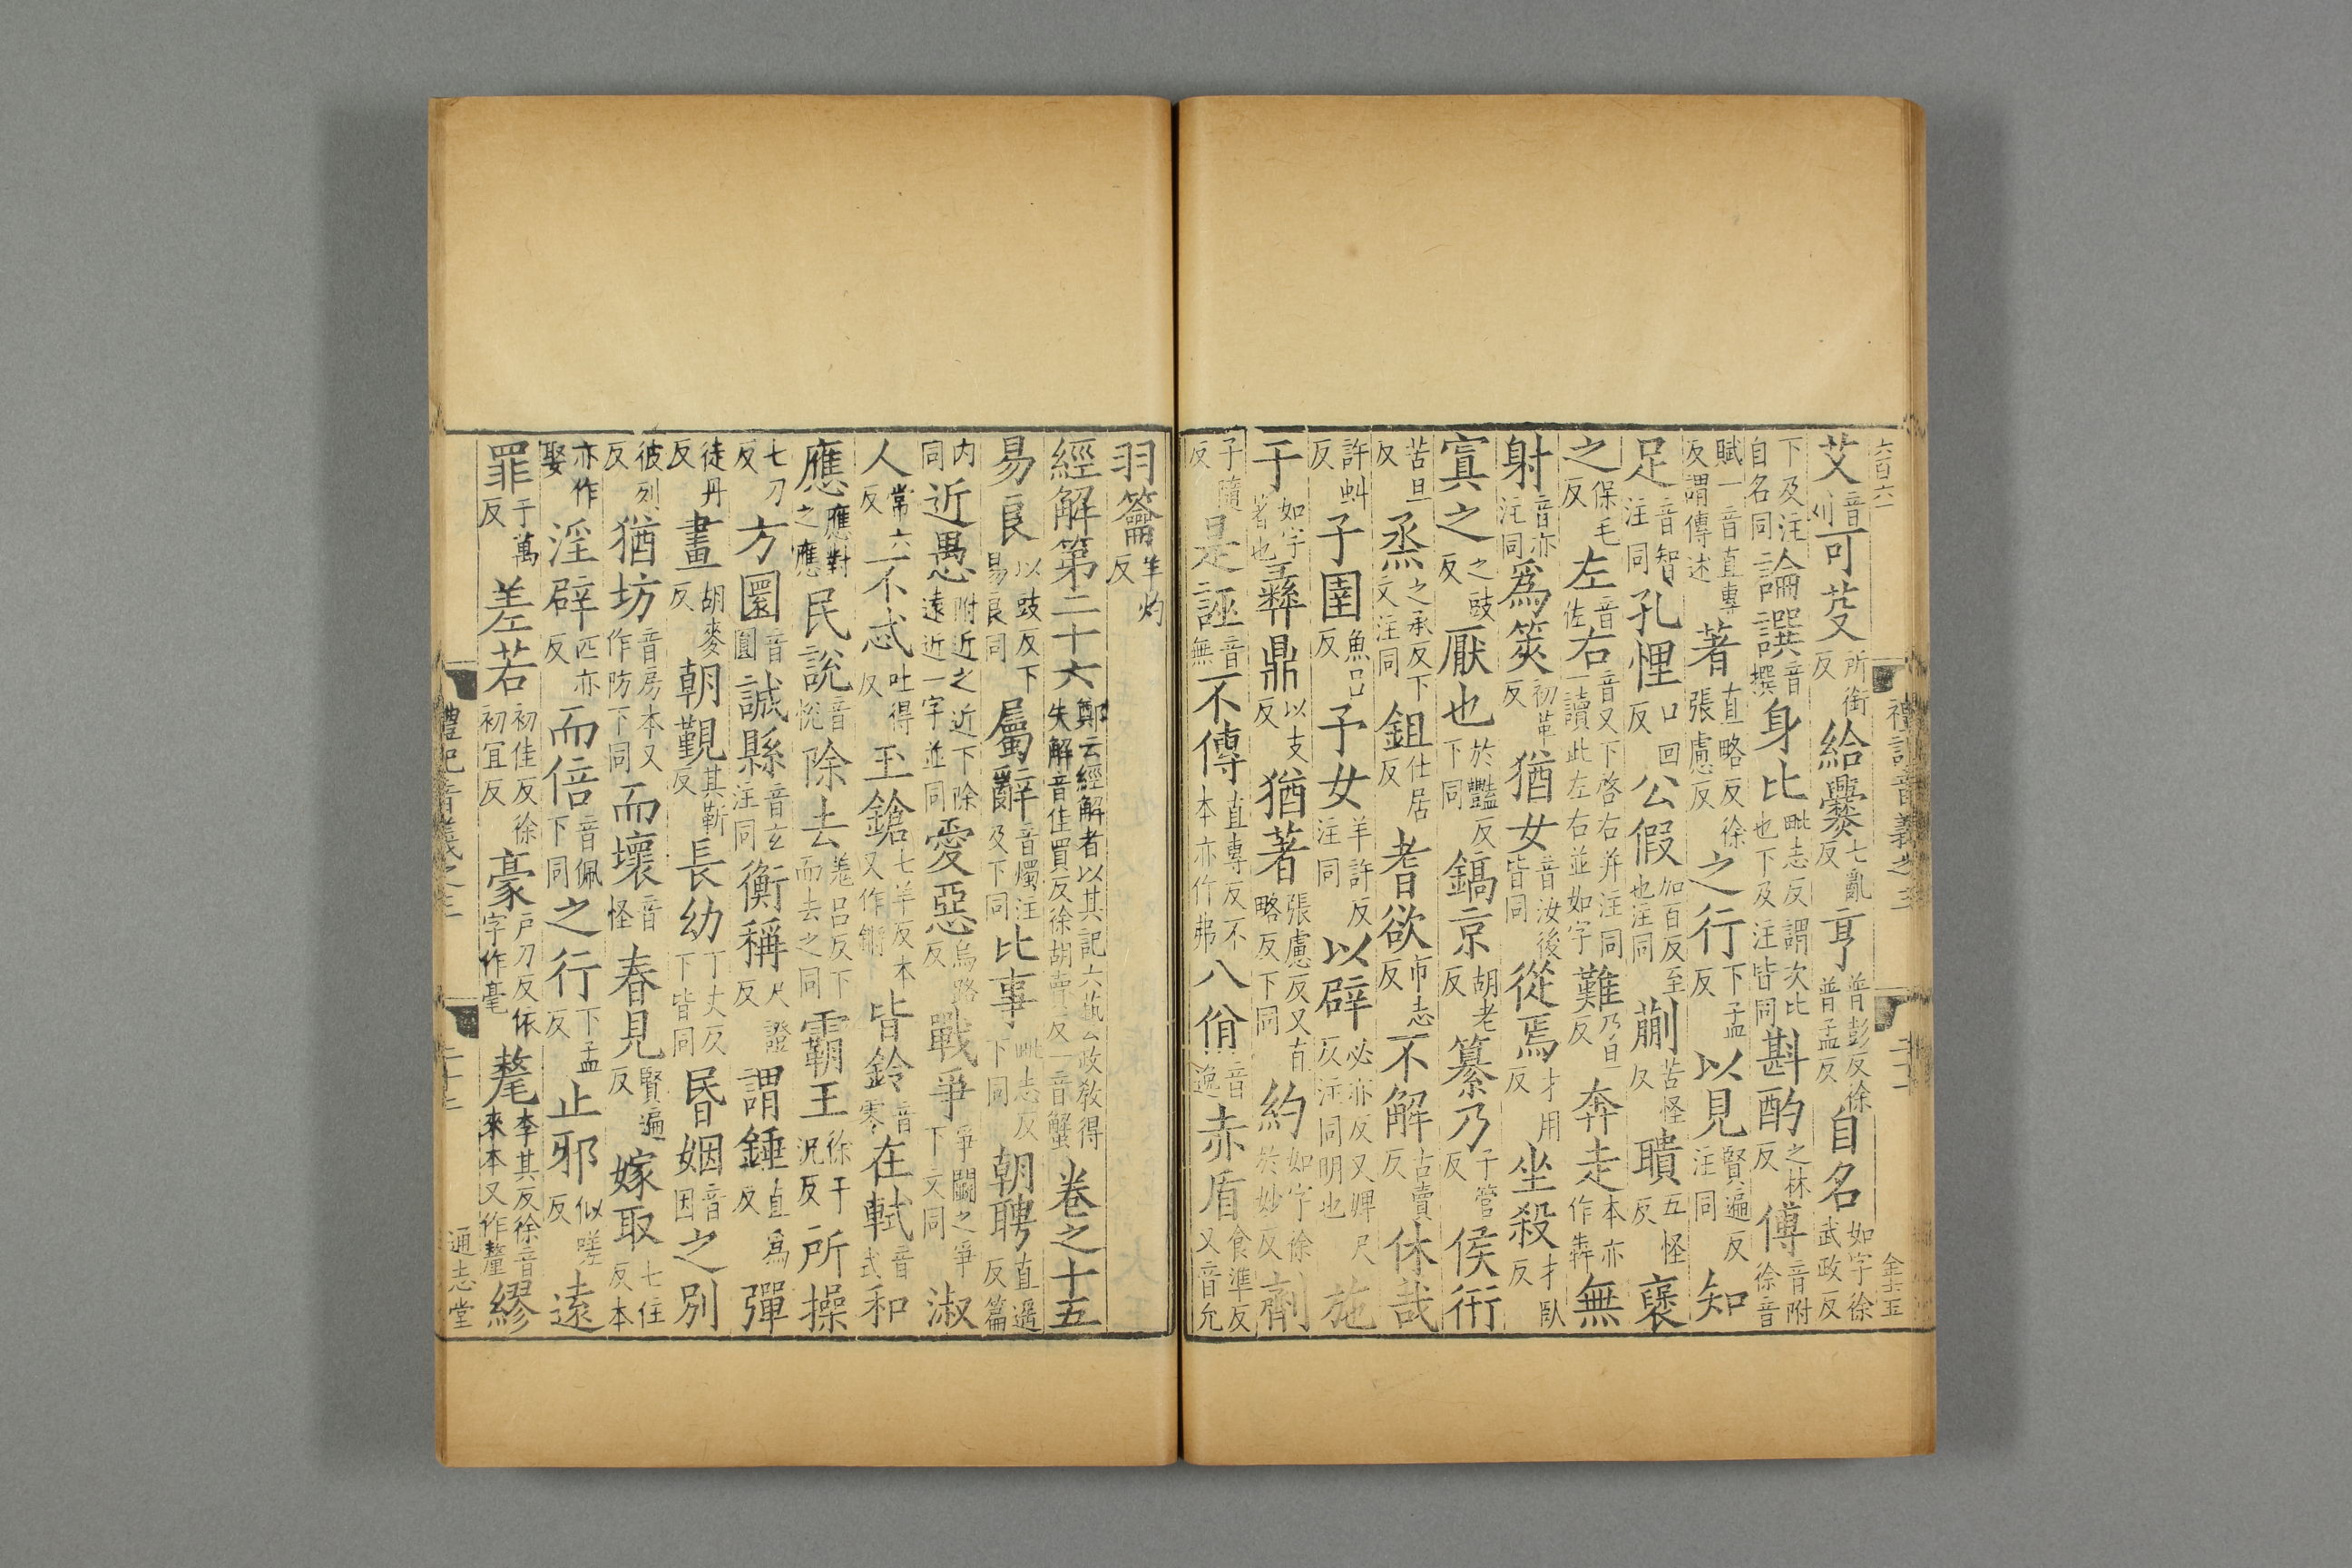 六百六
艾音刈可芟所銜反給爨七亂反亨普彭反徐普孟反自名如字徐武政反
下及注自名同論譔音撰身比毗志反謂次比也下及注皆同斟酌之林反傅音附徐音
賦一音直專反謂傳述著直略反徐張慮反之行下孟反以見賢遍反注同知
足音智注同孔悝口回反公假加百反至也注同蒯苦怪反聵五怪反襃
之保毛反左音佐右音又下啓右并注同一讀此左右並如字難乃旦反奔走本亦作犇無
射音亦注同爲筴初革反猶女音汝後皆同從焉才用反坐殺才臥反
寘之之豉反厭也於豔反下同鎬京胡老反纂乃子管反侯衎
苦旦反烝之承反下文注同鉏仕居反耆欲市志反不解古賣反休哉
許虯反子圉魚呂反予女羊許反注同以辟必亦反又婢尺反注同明也施
于如字著也彝鼎以支反猶著張慮反又直略反下同約如字徐於妙反劑
子隨反是誣音無不傳直專反不本亦作弗八佾音逸赤盾食準反又音允
禮記音義之三
二十一
金士玉
羽籥羊灼反
經解第二十六鄭云經解者以其記六藝政敎得失解音佳買反徐胡賣反一音蟹卷之十五
易良以豉反下易良同屬辭音燭注及下同比事毗志反下同朝聘直遥反篇
内同近愚附近之近下除遠近一字並同愛惡烏路反戰爭爭鬬之爭下文同淑
人常六反不忒吐得反玉鎗七羊反本又作鏘皆鈴音零在軾音式和
應應對之應民說音悅除去羌呂反下而去之同霸王徐于況反所操
七刀反方圜音圓誠縣音玄注同衡稱尺證反謂錘直爲反彈
徒丹反畫胡麥反朝覲其靳反長幼丁丈反下皆同昏姻音因之別
彼列反猶坊音房本又作防下同而壞音怪春見賢遍反嫁取七住反本
亦作娶淫辟匹亦反而倍音佩下同之行下孟反止邪似嗟反遠
罪于萬反差若初佳反徐初宜反豪戶刀反依字作毫氂李其反徐音來本又作釐繆
禮記音義之三
二十一
通志堂